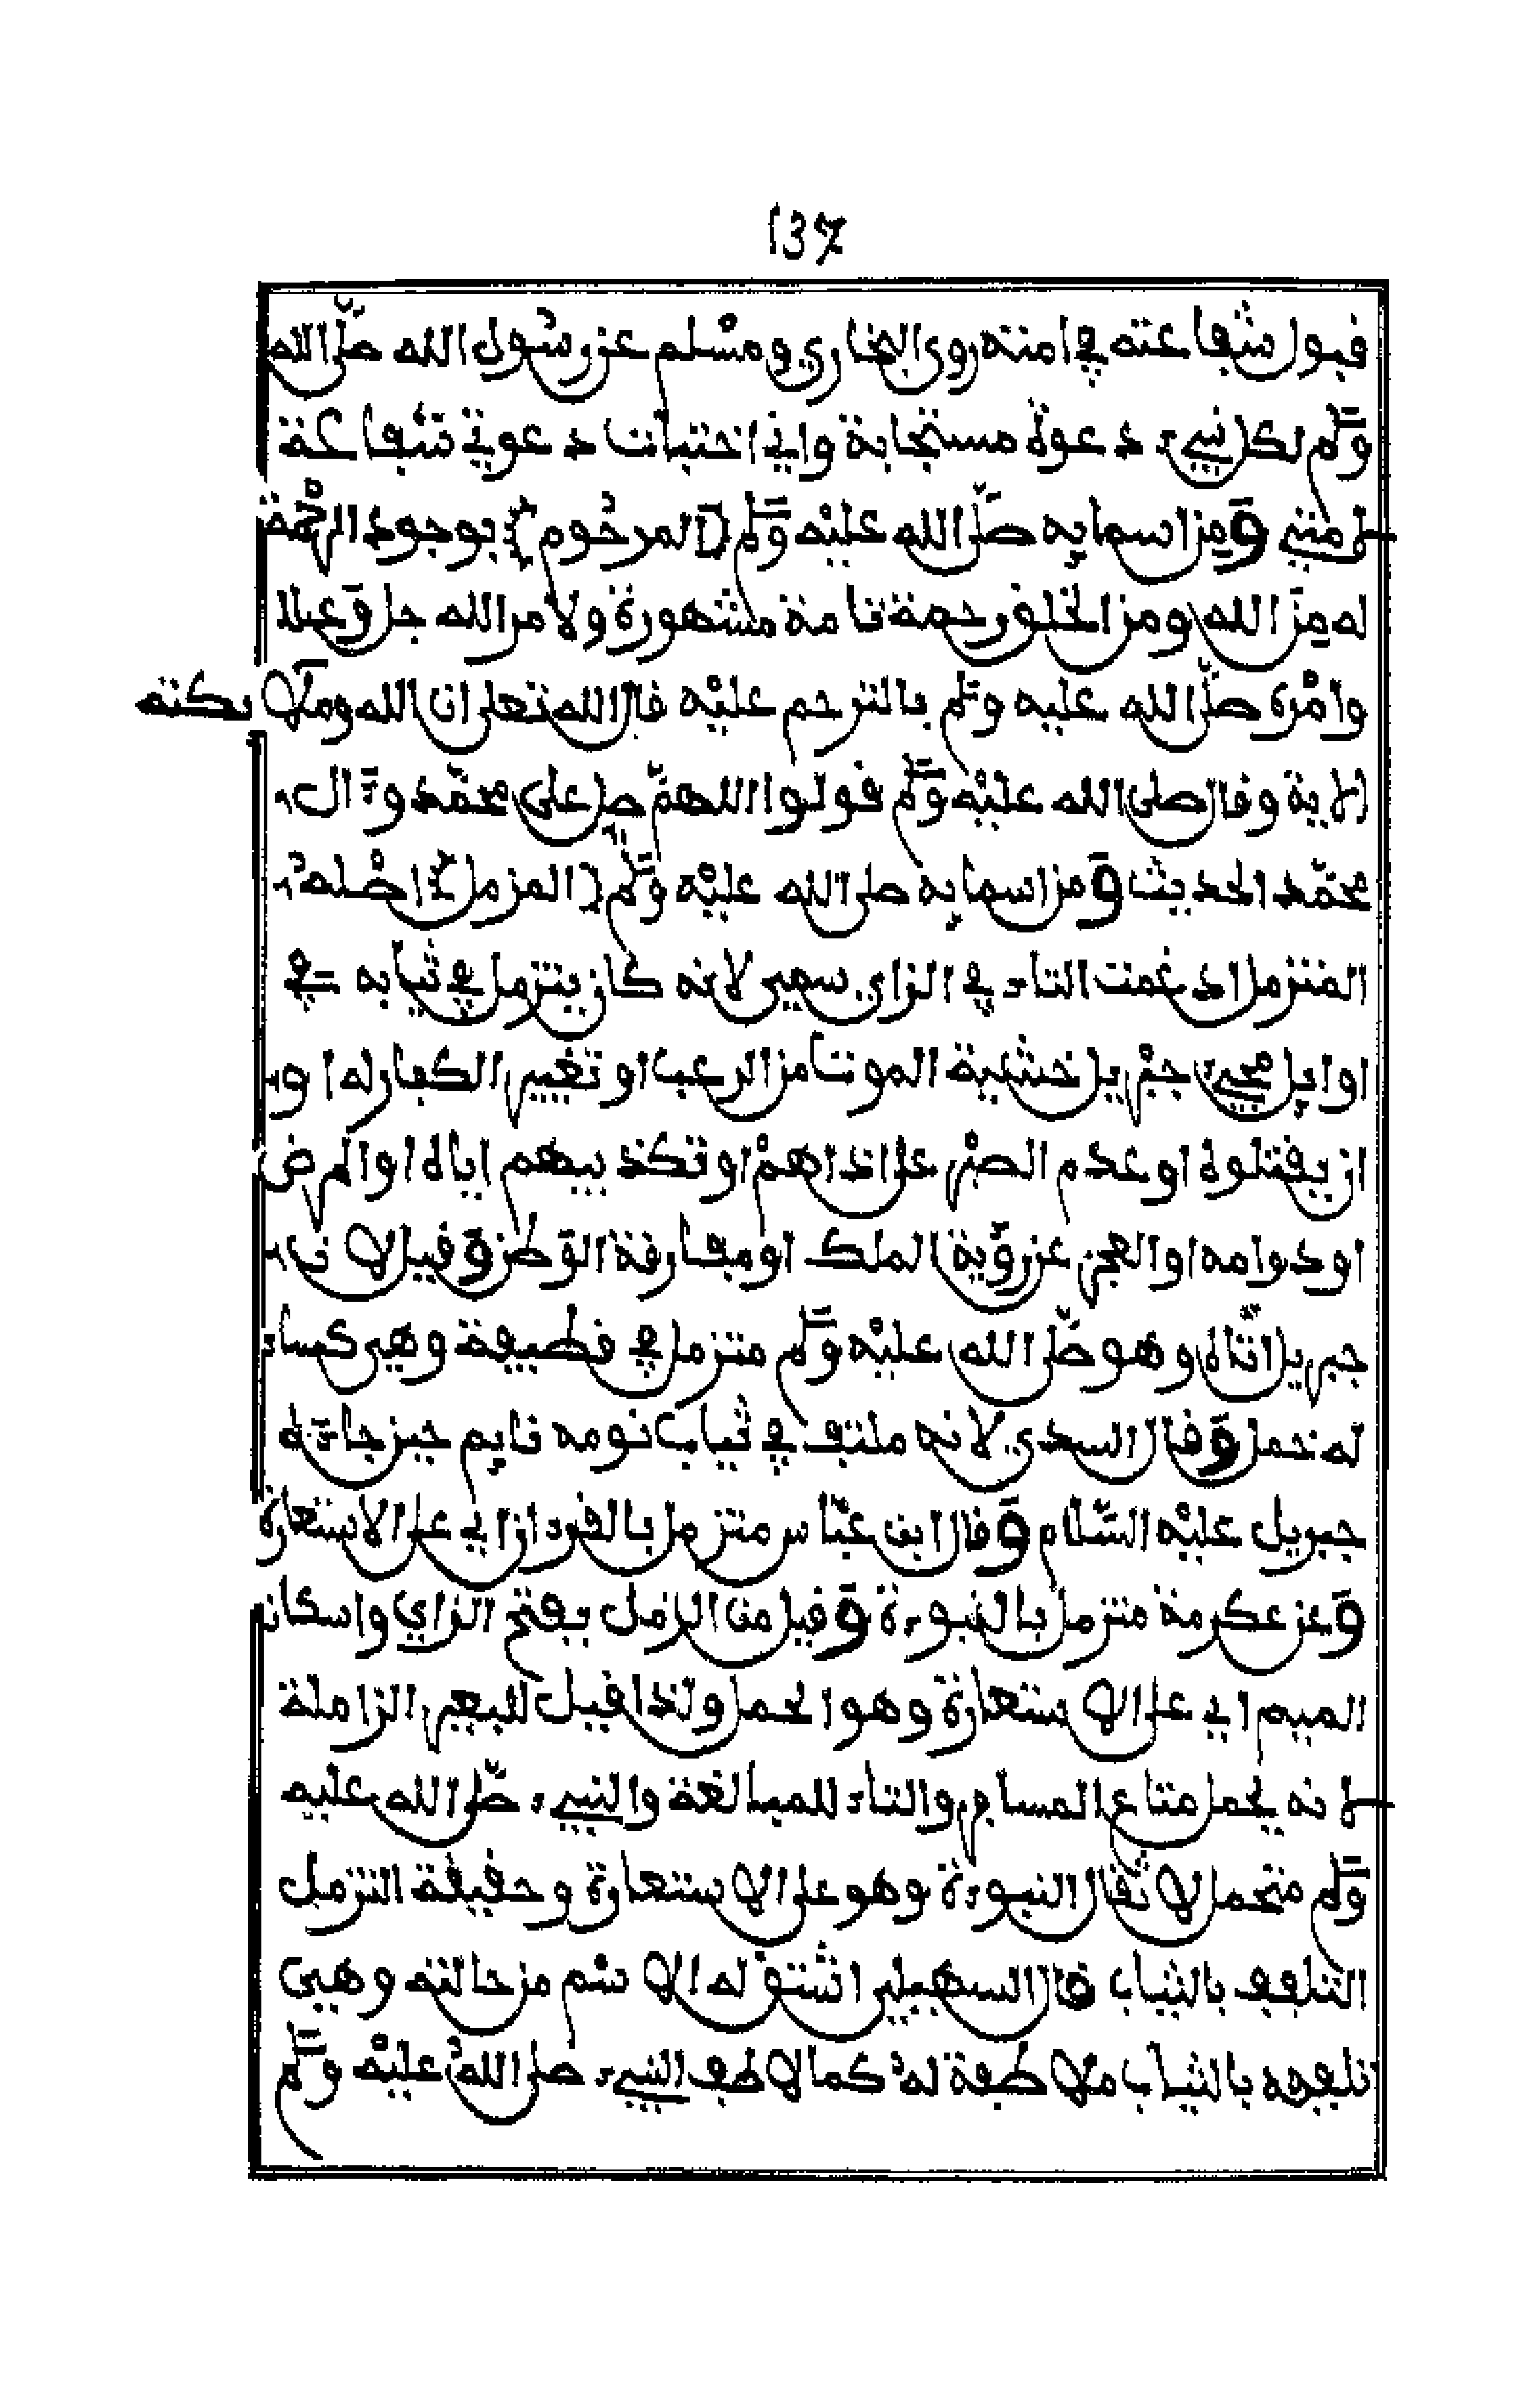 137
قبول شفاعته في امته روى البخاري ومسلم عن رسول الله صلى الله
وسلم لكل نبيء دعوة مستجابة واني اختبات دعوتي شفاعة
لامتي ومن اسمايه صلى الله عليه وسلم (المرحوم) بوجود الرحمة
له من الله ومن الخلق رحمة تامة مشهورة ولامر الله جل وعلا
وامره صلى الله عليه وسلم بالترحم عليه قال الله تعلى ان الله وملايكته
الاية وقال صلى الله عليه وسلم قولوا اللهم صل على محمد وءال
محمد الحديث ومن اسمايه صلى الله عليه وسلم (المزمل) اصله
المتزمل ادغمت التاء في الزاي سمي لانه كان يتزمل في ثيابه في
اوايل مجيء جبريل خشية الموت من الرعب او تغيير الكفار له او
ان يقتلوه او عدم الصبر على اذاهم او تكذيبهم اياه او المرض
او دوامه او العجز عن رؤية الملك او مفارقة الوطن وقيل لان
جبريل اتاه وهو صلى الله عليه وسلم متزمل في قطيفة وهي كساء
له خمل وقال السدي لانه ملتف في ثياب نومه نايم حين جاءه
جبريل عليه السلام وقال ابن عباس متزمل بالقرءان اي على الاستعارة
وعن عكرمة متزمل بالنبوءة وقيل من الزمل بفتح الزاي واسكان
الميم اي على الاستعارة وهو الحمل ولذا قيل للبعير الزاملة
لانه يحمل متاع المسافر والتاء للمبالغة والنبيء صلى الله عليه
وسلم متحمل لاثقال النبوءة وهو على الاستعارة وحقيقة التزمل
التلفف بالثياب قال السهيلي اشتق له الاسم من حالته وهي
تلففه بالثياب ملاطفة له كما لاطف النبيء صلى الله عليه وسلم